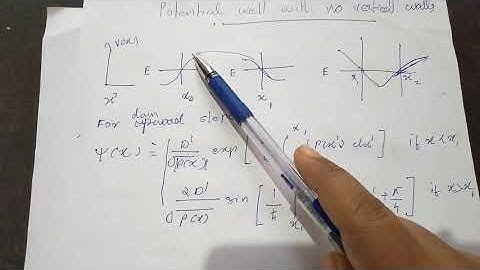 Potential well with no vertical walls
V(x)
E
E
E
x
x₀
x₁
x₁
x₂
For down
upward slope
ψ(x) ≅ D'/√|P(x)| exp[ x₁ |P(x')| dx' ] if x<x₁
2D'/√P(x) sin [ 1/ħ dx' + π/ ] if x>x₁